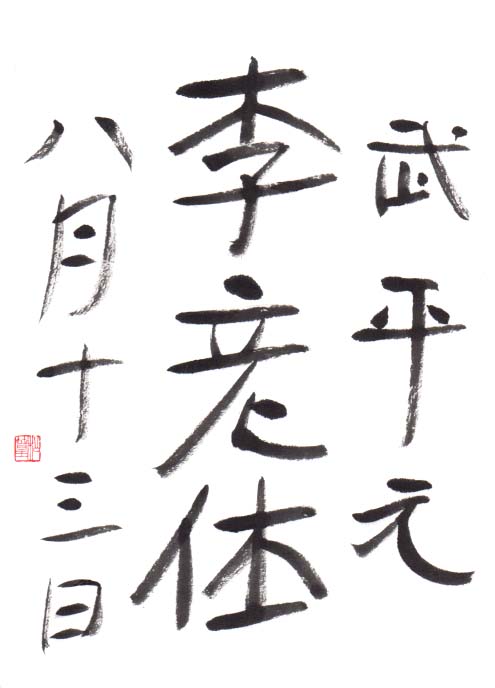 武平元
李老体
八月十三日